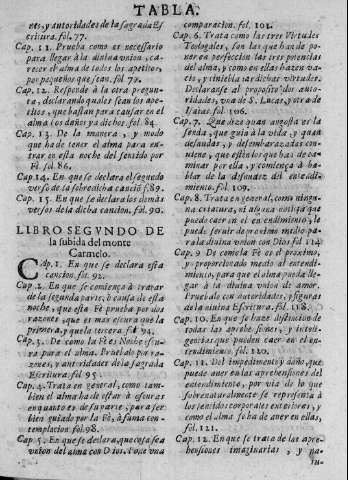 TABLA.
tes, y autoridades de la sagrada Es
critura. fol. 77.
Cap. 11. Prueba como es necessario
para llegar à la divina union, ca-
recer el alma de todos los apetitos,
por pequeños que sean. fol. 79.
Cap. 12. Responde à la otra pregun-
ta, declarando quales sean los ape-
titos, que bastan para causar en el
alma los daños ya dichos. fol. 84.
Cap. 13. De la manera, y modo
que ha de tener el alma para en-
trar en esta noche del sentido por
Fè. fol. 86.
Cap. 14. En que se declara el segundo
verso de la sobredicha canciõ f. 89.
Cap. 15. En que se declara los demas
versos de la dicha cancion. fol. 90.
LIBRO SEGVNDO DE
la subida del monte
Carmelo.
Cap. 1. En que se declara esta
cancion. fol. 92.
Cap. 2. En que se comiença à tratar
de la segunda parte, ò causa de esta
noche, que es Fè. Prueba por dos
razones, que es mas escura que la
primera, y que la tercera. fol 94.
Cap. 3. De como la Fè es Noche escu-
ra para el alma. Pruebalo por ra-
zones, y autoridades de la sagrada
Escritura. fol. 95.
Cap. 4. Trata en general, como tam-
bien el alma ha de estar à escuras
en quanto es de su parte, para ser
bien guiado por la Fè, à suma con-
templacion fol. 98.
Cap. 5. En que se declara, que cosa sea
vnion del alma con Dios. Pone vna
comparacion. fol. 101.
Cap. 6. Trata como las tres Virtudes
Teologales, son las que han de po-
ner en perfeccion las tres potencias
del alma, y como en ellas hazen va-
cio, y tiniebla las dichas virtudes.
Declaranse al proposito dos auto-
ridades, vna de S. Lucas, y otra de
Isaias fol. 106.
Cap. 7. Que diga quan angosta es la
senda, que guia à la vida, y quan
desnudos, y desembarazados con-
viene, que estèn los que han de ca-
minar por ella, y comiença à ha-
blar de la desnudez del entendi-
miento. fol. 109.
Cap. 8. Trata en general, como ningu-
na criatura, ni alguna noticia que
puede caer en el entendimiento, le
puede servir de proximo medio pa-
ra la divina vnion con Dios fol 114
Cap. 9. De como la Fè es el proximo,
y proporcionado medio al entendi-
miento, para que el alma pueda lle-
gar à la divina vnion de amor.
Pruebalo con autoridades, y figuras
de la divina Escritura. fol. 118.
Cap. 10. En que se haze distincion de
todas las aprehensiones, y inteli-
gencias que pueden caer en el en-
tendimiento. fol. 120.
Cap. 11. Del impedimento, y daño, que
puede aver en las aprehensiones del
entendimiento, por via de lo que
sobrenaturalmente se representa à
los sentidos corporales exteriores, y
como el alma se ha de aver en ellas,
fol. 121.
Cap. 12. En que se trata de las apre-
hensiones imaginarias, y na-
tu-